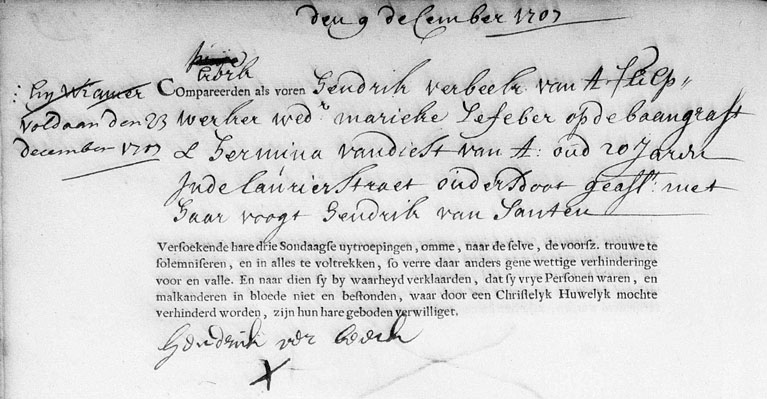 den 9 december 1707
kerk
Compareerden als voren Hendrik verbeek van A
voldaan den 23
december 1707
werker wedr marieke Lefeber op de baangraft
& Hermina van diest van A: oud 20 Jaren
In de laurierstraet ouders doot geasst: met
Haar voogt Hendrik van Santen
Versoekende hare drie Sondaagse uytroepingen, omme, naar de selve, de voorsz. trouwe te
solemniseren, en in alles te voltrekken, so verre daar anders gene wettige verhinderinge
voor en valle. En naar dien sy by waarheyd verklaarden, dat sy vrye Personen waren, en
malkanderen in bloede niet en bestonden, waar door een Christelyk Huwelyk mochte
verhinderd worden, zijn hun hare geboden verwilliget.
Hendrick ver beeck
X